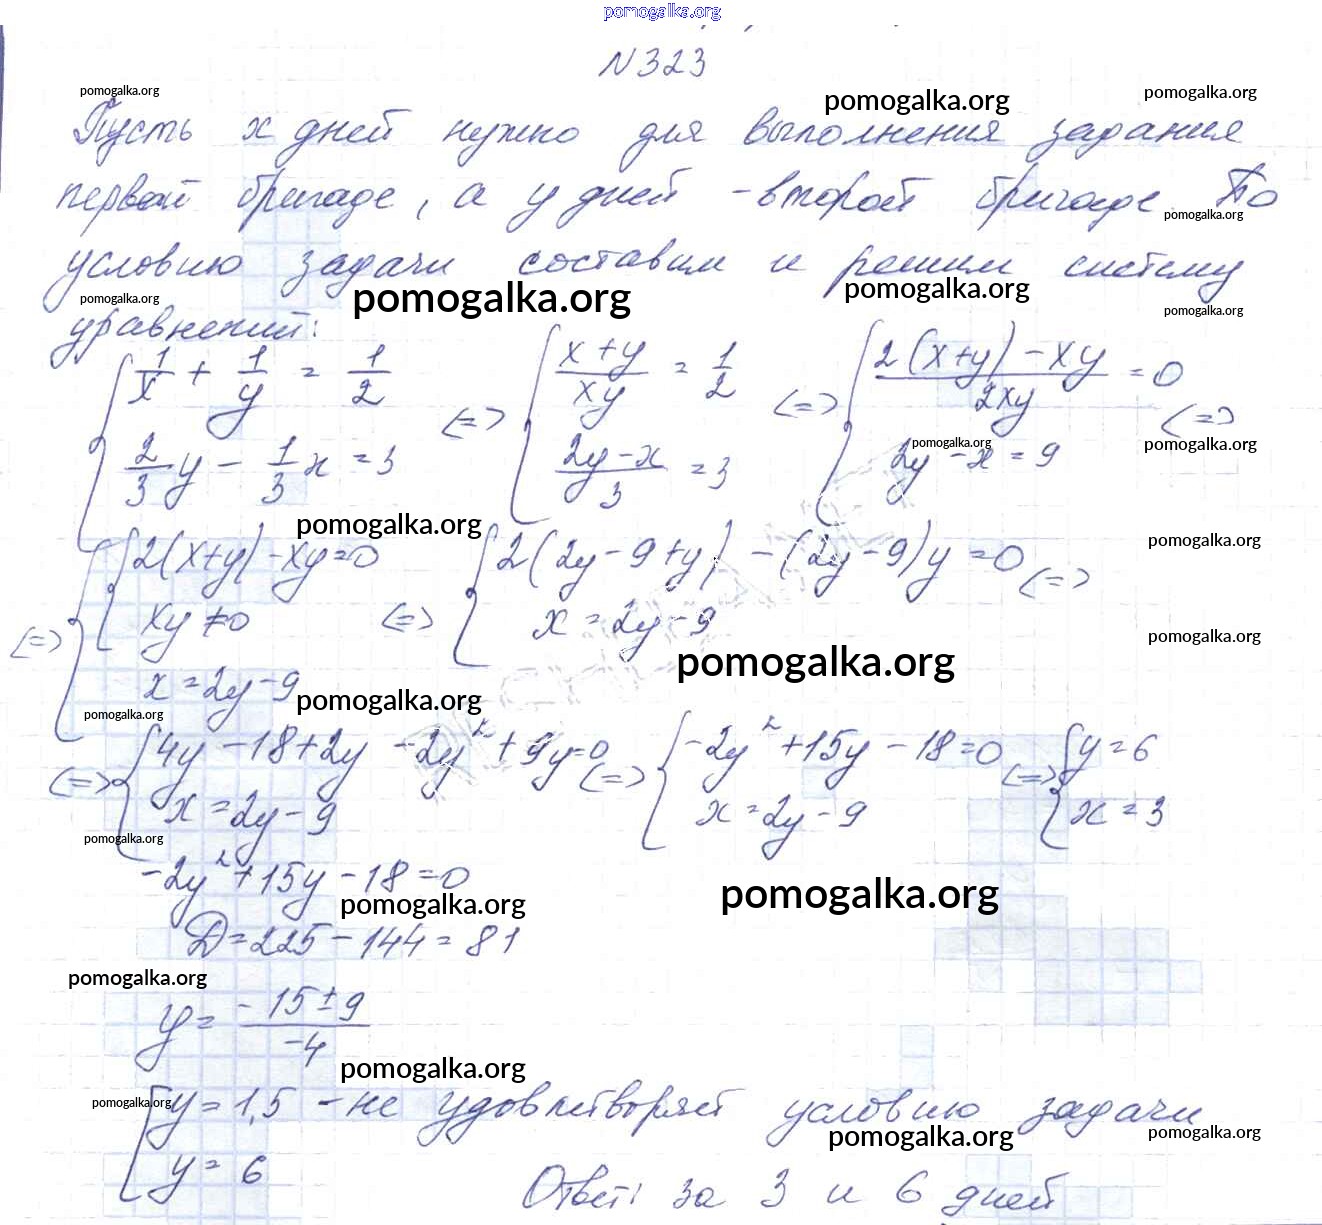 pomogalka.org
N323
pomogalka.org pomogalka.org pomogalka.org
Пусть x дней нужно для выполнения задания
первой бригаде, а y дней - второй бригаде. По
pomogalka.org
условию задачи составим и решим систему
pomogalka.org pomogalka.org pomogalka.org pomogalka.org
уравнений:
{ 1/x + 1/y = 1/2 <=> { (x+y)/xy = 1/2 <=> { (2(x+y)-xy)/2xy = 0 <=>
2/3 y - 1/3 x = 3 (2y-x)/3 = 3 2y-x = 9
pomogalka.org pomogalka.org
pomogalka.org pomogalka.org
<=> { { 2(x+y)-xy=0 <=> { 2(2y-9+y) - (2y-9)y = 0 <=>
xy≠0 x = 2y-9
pomogalka.org
x = 2y-9 pomogalka.org
pomogalka.org pomogalka.org
<=> { 4y-18+2y-2y²+9y=0 <=> { -2y²+15y-18=0 <=> { y=6
x = 2y-9 x = 2y-9 x = 3
pomogalka.org
-2y²+15y-18=0
pomogalka.org pomogalka.org
D=225-144=81
pomogalka.org
y = (-15±9)/-4
pomogalka.org
pomogalka.org
[ y = 1,5 - не удовлетворяет условию задачи
pomogalka.org pomogalka.org
y = 6
Ответ: за 3 и 6 дней